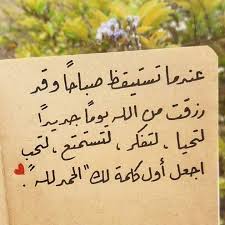 عندما تستيقظ صباحًا وقد
رزقت من الله يومًا جديدًا
لتحيا ، لتفكر ، لتستمتع ، لتحب
اجعل أول كلمة لك "الحمد لله".